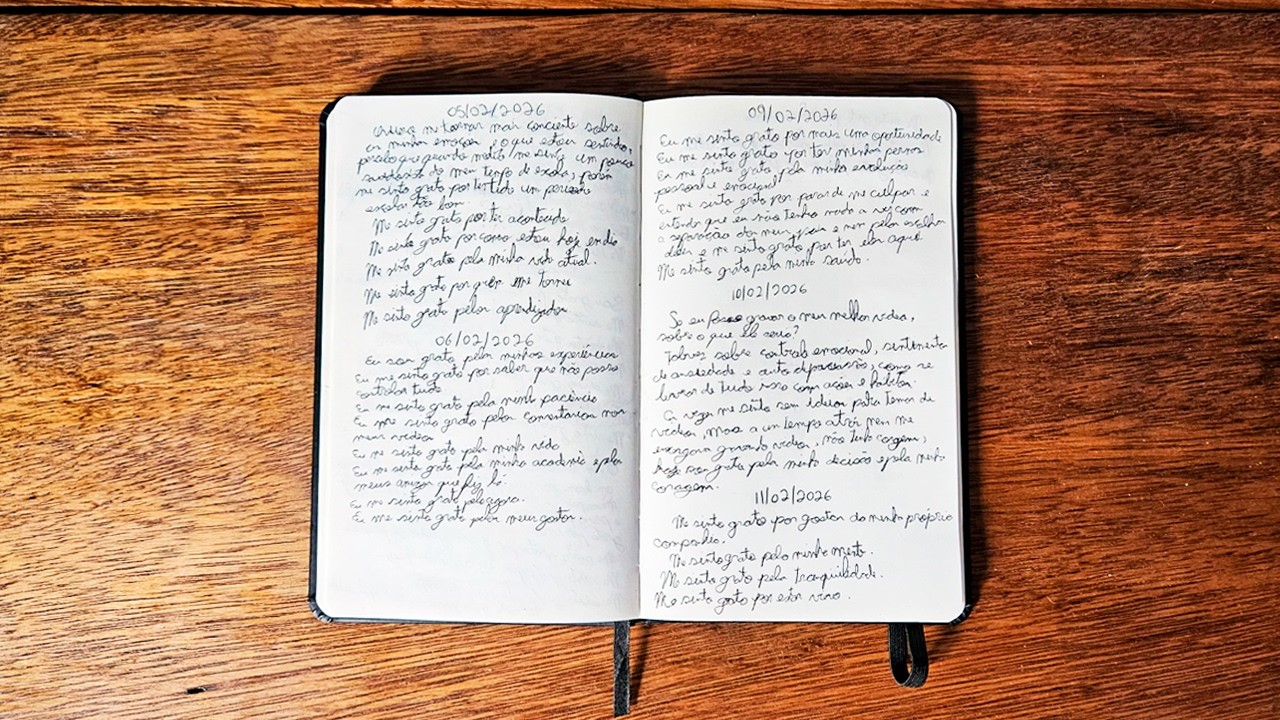 05/02/2026
me tornar mais conciente sobre
as minhas emoções, o que estou sentindo,
quando medito me sinto um pouco
do meu tempo de escola, porém
me sinto grato por ter tido um
escolar tão bom.
Me sinto grato por ter acontecido
Me sinto grato por como estou hoje em dia
Me sinto grato pela minha vida atual.
Me sinto grato por quem me tornei
Me sinto grato pelos aprendizados
06/02/2026
Eu sou grato pelas minhas experiências
Eu me sinto grato por saber que não posso
controlar tudo
Eu me sinto grato pela minha paciência
Eu me sinto grato pelos comentarios nos
meus videos
Eu me sinto grato pela minha vida
Eu me sinto grato pela minha academia e pelos
meus amigos que fiz lá.
Eu me sinto grato pelo agora.
Eu me sinto grato pelos meus gostos.
09/02/2026
Eu me sinto grato por mais uma oportunidade
Eu me sinto grato por ter minhas pernas
Eu me sinto grato pela minha evolução
pessoal e emocional
Eu me sinto grato por parar de me culpar e
entender que eu não tenho nada a ver com
a separação dos meus pais e nem pelas escolhas
deles e me sinto grato por ter eles aqui.
Me sinto grato pela minha saúde.
10/02/2026
Se eu posso gravar o meu melhor video,
sobre o que ele seria?
Talvez sobre controle emocional, sentimento
de ansiedade e auto depreciação, como se
livrar de tudo isso com ações e habitos.
As vezes me sinto sem ideias para temas de
videos, mas a um tempo atrás nem me
enxergava gravando videos, não tinha coragem,
hoje sou grato pela minha decisão e pela minha
coragem.
11/02/2026
Me sinto grato por gostar da minha própria
companhia.
Me sinto grato pela minha mente.
Me sinto grato pela tranquilidade.
Me sinto grato por estar vivo.